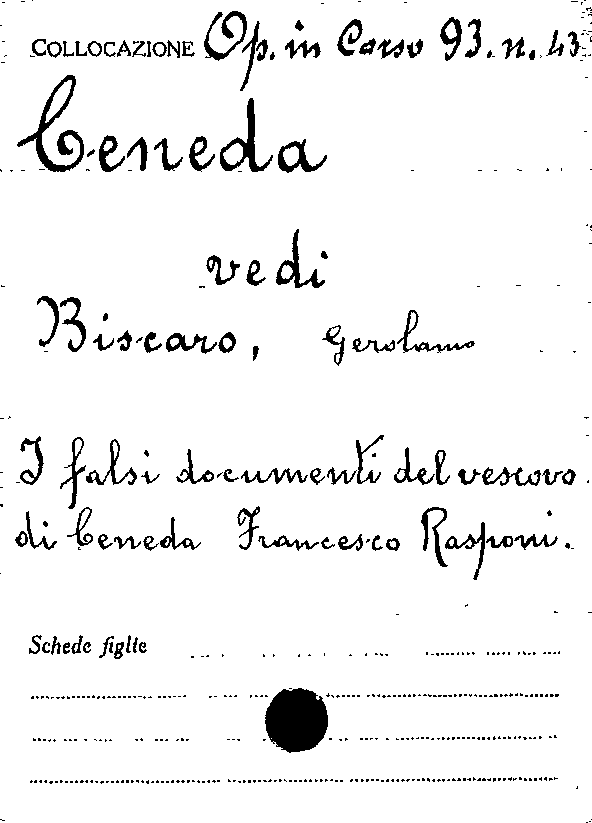 COLLOCAZIONE Op. in Corso 93. n. 43
Ceneda
vedi
Biscaro, Gerolamo
I falsi documenti del vescovo
di Ceneda Francesco Rasponi.
Schede figlie